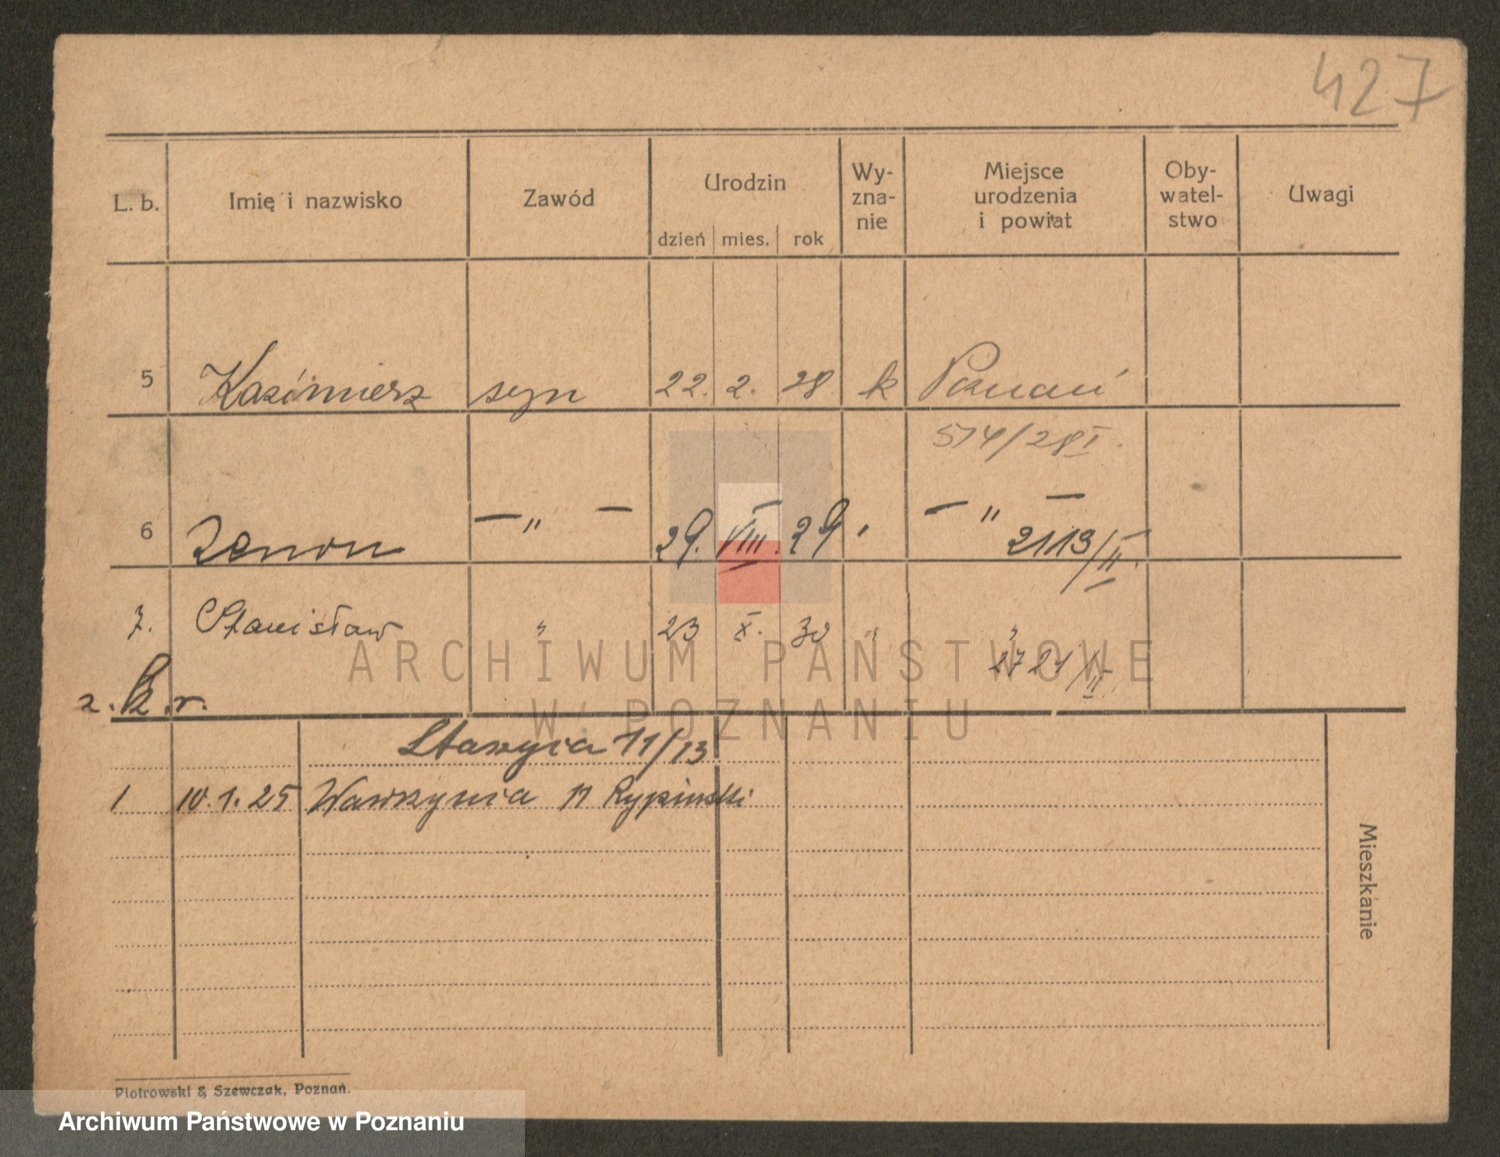 427
L. b. Imię i nazwisko Zawód Urodzin Wy-zna-nie Miejsce urodzenia i powiat Oby-watel-stwo Uwagi
dzień mies. rok
5 Kazimierz syn 22. 2. 28 k Poznań
574/28 I.
6 Zenon — " — 29. VIII. 29 " — " —
2113/II.
7. Stanisław " 23 X. 30 " "
2721/II
z. k. r.
11/13
1 10.1.25 Wawrzynia 11 Rypiński
Mieszkanie
Piotrowski & Szewczak, Poznań.
ARCHIWUM PAŃSTWOWE
W POZNANIU
Archiwum Państwowe w Poznaniu